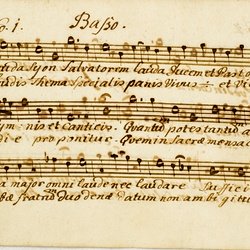 No. 1. Basso.
da Syon Salvatorem lauda Ducem et Pasto
laudis Thema specialis panis Vivus et Vi
hym nis et Canticis. Quantu potes tantu
die proponitur. Quem in Sacræ mensæ
a major omni laude nec laudare Suffic
bæ fratru duo denæ datum non ambigitu